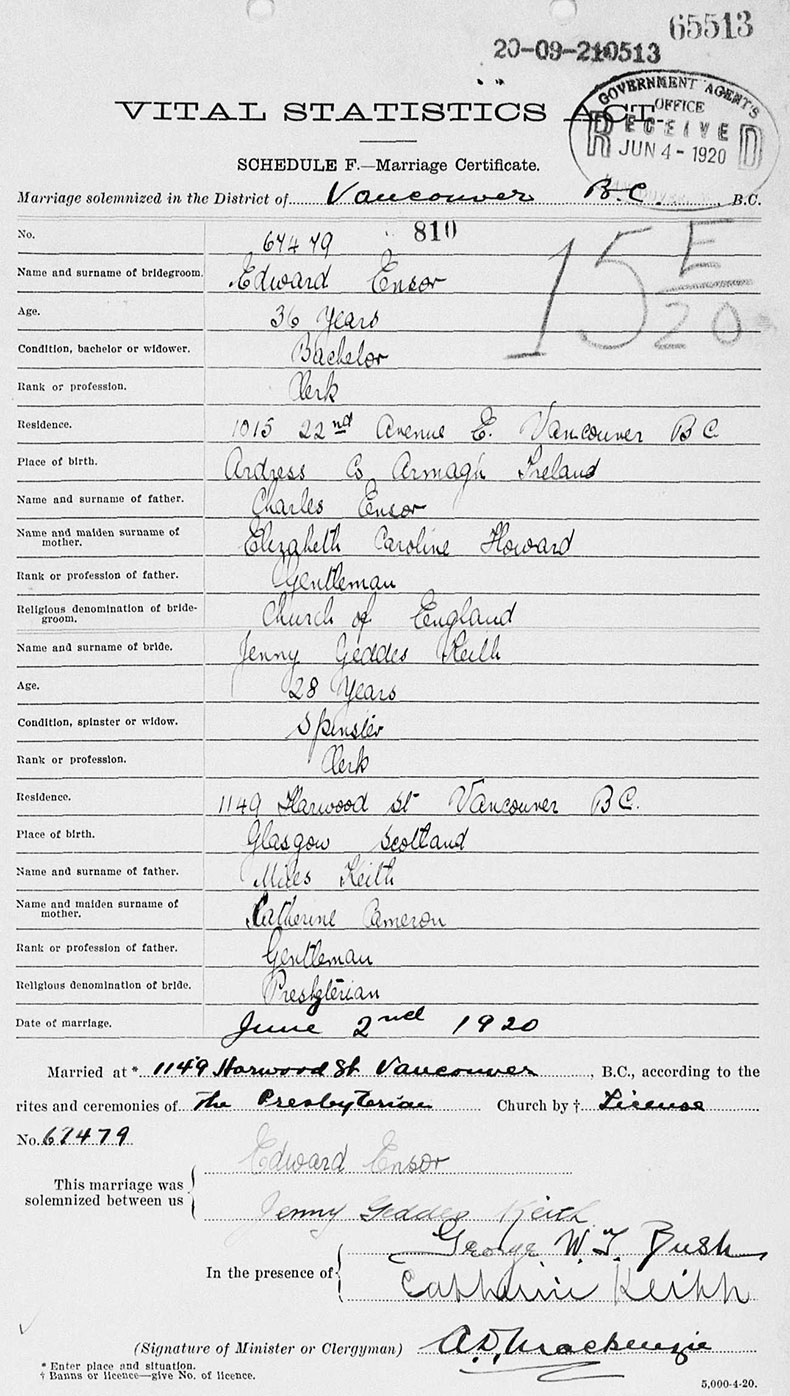 65513
20-09-210513
VITAL STATISTICS ACT.
GOVERNMENT AGENT'S
OFFICE
RECEIVED
JUN 4 - 1920
SCHEDULE F.—Marriage Certificate.
Marriage solemnized in the District of Vancouver B.C. , B.C.
No. 67479 810
15 E/20
Name and surname of bridegroom. Edward Ensor
Age. 36 Years
Condition, bachelor or widower. Bachelor
Rank or profession. Clerk
Residence. 1015 22nd Avenue E. Vancouver B C
Place of birth. Ardress Co Armagh Ireland
Name and surname of father. Charles Ensor
Name and maiden surname of mother. Elizabeth Caroline Howard
Rank or profession of father. Gentleman
Religious denomination of bride-groom. Church of England
Name and surname of bride. Jenny Geddes Keith
Age. 28 Years
Condition, spinster or widow. Spinster
Rank or profession. Clerk
Residence. 1149 Harwood St Vancouver B C.
Place of birth. Glasgow Scotland
Name and surname of father. Miles Keith
Name and maiden surname of mother. Catherine Cameron
Rank or profession of father. Gentleman
Religious denomination of bride. Presbyterian
Date of marriage. June 2nd 1920
Married at * 1149 Harwood St. Vancouver , B.C., according to the
rites and ceremonies of The Presbyterian Church by † License
No. 67479
This marriage was solemnized between us
Edward Ensor
Jenny Geddes Keith
In the presence of
George W. T. Bush
Catherine Keith
(Signature of Minister or Clergyman) A.D. Mackenzie
* Enter place and situation.
† Banns or licence—give No. of licence.
5,000-4-20.